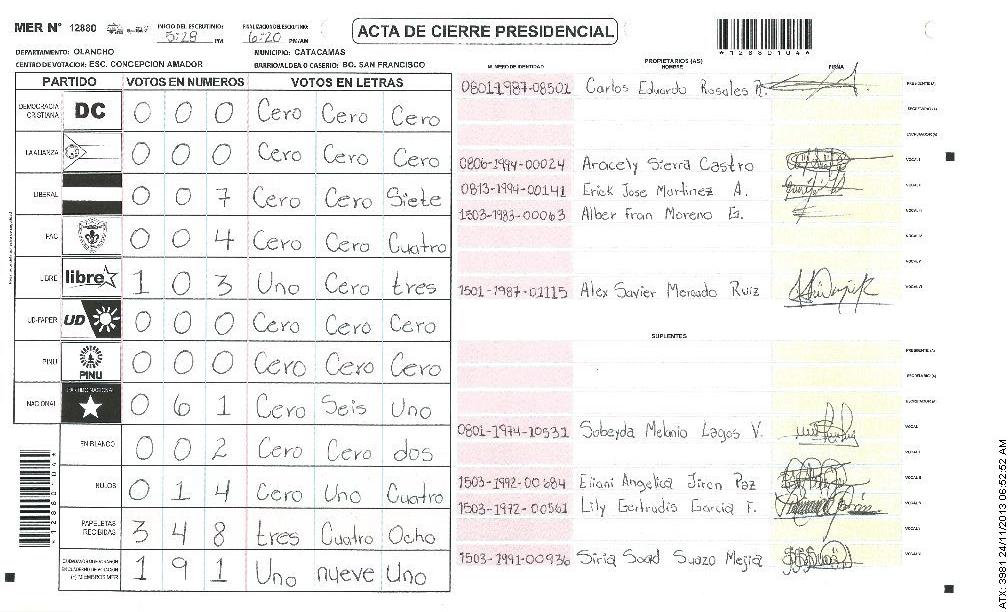 MER N° 12880 INICIO DEL ESCRUTINIO: 5:28 PM FINALIZACION DEL ESCRUTINIO: 6:20 PM/AM
ACTA DE CIERRE PRESIDENCIAL
*12880104*
DEPARTAMENTO: OLANCHO MUNICIPIO: CATACAMAS
CENTRO DE VOTACION: ESC. CONCEPCION AMADOR BARRIO/ALDEA O CASERIO: BO. SAN FRANCISCO
PARTIDO VOTOS EN NUMEROS VOTOS EN LETRAS
DEMOCRACIA CRISTIANA DC 0 0 0 Cero Cero Cero
LA ALIANZA 0 0 0 Cero Cero Cero
LIBERAL 0 0 7 Cero Cero Siete
PAC 0 0 4 Cero Cero Cuatro
LIBRE libre 1 0 3 Uno Cero tres
UD-FAPER UD 0 0 0 Cero Cero Cero
PINU PINU 0 0 0 Cero Cero Cero
NACIONAL PARTIDO NACIONAL 0 6 1 Cero Seis Uno
EN BLANCO 0 0 2 Cero Cero dos
NULOS 0 1 4 Cero Uno Cuatro
PAPELETAS RECIBIDAS 3 4 8 tres Cuatro Ocho
1 9 1 Uno nueve Uno
*12880104*
PROPIETARIOS (AS)
NUMERO DE IDENTIDAD NOMBRE FIRMA
0801-1987-08501 Carlos Eduardo Rosales R. PRESIDENTE (A)
SECRETARIO (A)
ESCRUTADOR (A)
0806-1994-00024 Aracely Sierra Castro VOCAL I
0813-1994-00141 Erick Jose Martinez A. VOCAL II
1503-1983-00063 Alber Fran Moreno G. VOCAL III
VOCAL IV
VOCAL V
1501-1987-01115 Alex Savier Mercado Ruiz VOCAL VI
SUPLENTES
PRESIDENTE (A)
SECRETARIO (A)
ESCRUTADOR (A)
0801-1974-10531 Sobeyda Melania Lagos V. VOCAL I
VOCAL II
1503-1992-00684 Eliani Angelica Jiron Paz VOCAL III
1503-1972-00561 Lily Gertrudis Garcia F. VOCAL IV
VOCAL V
1503-1991-00936 Siria Soad Suazo Mejia VOCAL VI
ATX: 3981 24/11/2013 06:52:52 AM